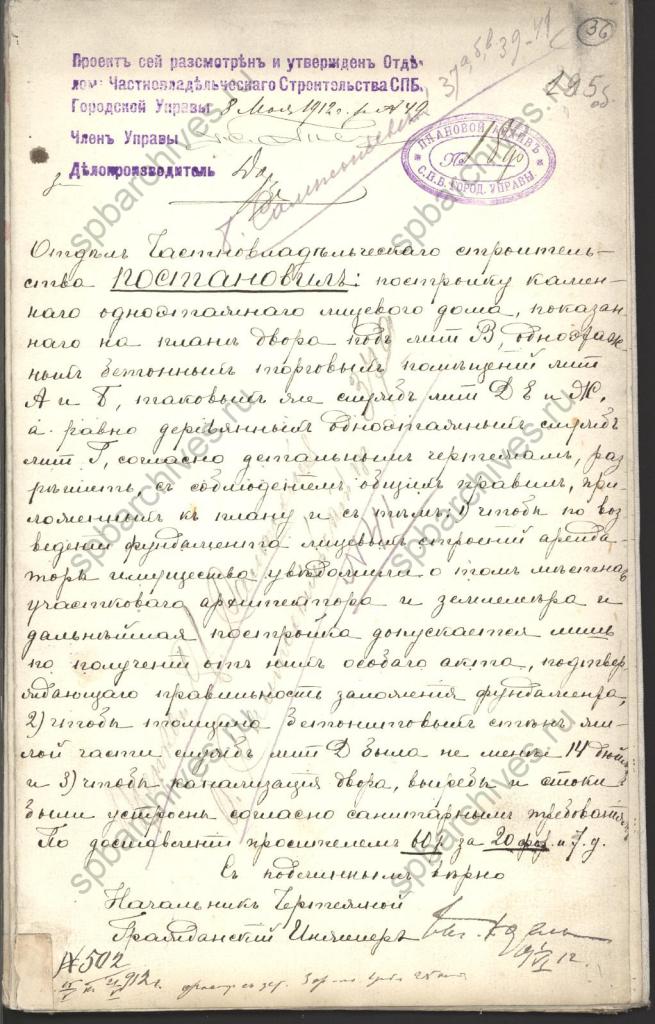 36
37а,б,в 39-41
195 об
Проектъ сей разсмотрѣнъ и утвержденъ Отдѣ-
ломъ Частновладѣльческаго Строительства СПБ.
Городской Управы 8 Мая 1912 г. р. № 49
Членъ Управы
Дѣлопроизводитель
ПЛАНОВОЙ АРХИВЪ
№
С.П.Б. ГОРОД. УПРАВЫ.
Отдѣлъ Частновладѣльческаго строитель-
ства постановилъ: постройку камен-
наго одноэтажнаго лицевого дома, показан-
наго на планѣ двора подъ лит В, одноэтаж-
ныхъ бетонныхъ торговыхъ помѣщеній лит
А и Б, таковыхъ же службъ лит Д Е и Ж,
а равно деревянныхъ одноэтажныхъ службъ
лит Г, согласно детальнымъ чертежамъ, раз
рѣшить, съ соблюденіемъ общихъ правилъ, при-
ложенныхъ къ плану и съ тѣмъ: 1) чтобы по воз
ведении фундамента лицевыхъ строеній аренда-
торы имущества увѣдомили о томъ мѣстнаго
участковаго архитектора и землемѣра и
дальнѣйшая постройка допускается лишь
по полученіи отъ нихъ особаго акта, подтвер-
ждающаго правильность заложенія фундамента,
2) чтобы толщина бетонитовыхъ стѣнъ жи-
лой части службъ лит Д была не менѣе 14 дюйм
и 3) чтобы канализація двора, выгребы и стоки
были устроены согласно санитарнымъ требованіямъ
По доставленіи просителемъ 60 р за 20 фор. и 7. д.
Съ подлиннымъ вѣрно
Начальникъ Чертежной
Гражданскій Инженеръ
№ 502
1912 г.
spbarchives.ru